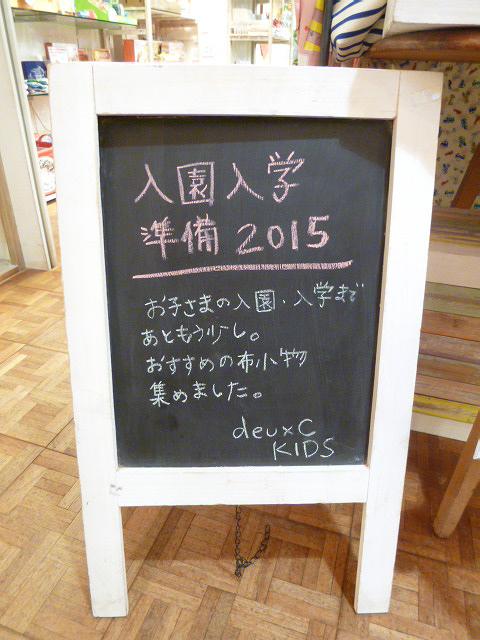 入園入学
準備2015
お子さまの入園・入学まで
あともう少し。
おすすめの布小物
集めました。
deuxC
KIDS